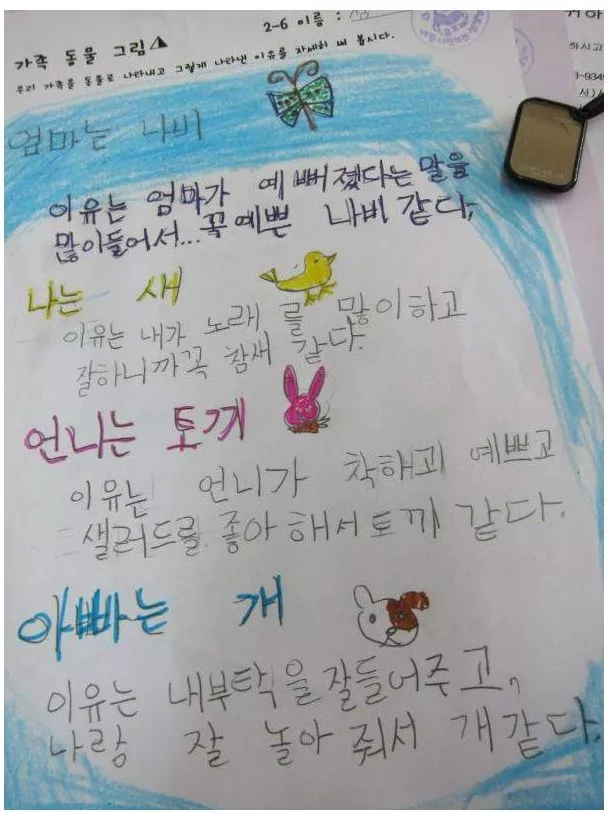 2-6 이름 :
가족 동물 그림
우리 가족을 동물로 나타내고 그렇게 나타낸 이유를 자세히 써 봅시다.
엄마는 나비
이유는 엄마가 예뻐졌다는 말을
많이들어서...꼭예쁜 나비 같다,
나는 새
이유는 내가 노래 를 많이하고
잘하니까꼭 참새 같다.
언니는 토끼
이유는 언니가 착해고 예쁘고
샐러드를 좋아 해서 토끼 같다.
아빠는 개
이유는 내부탁을 잘들어주고,
나랑 잘 놀아 줘서 개같다.
하시고